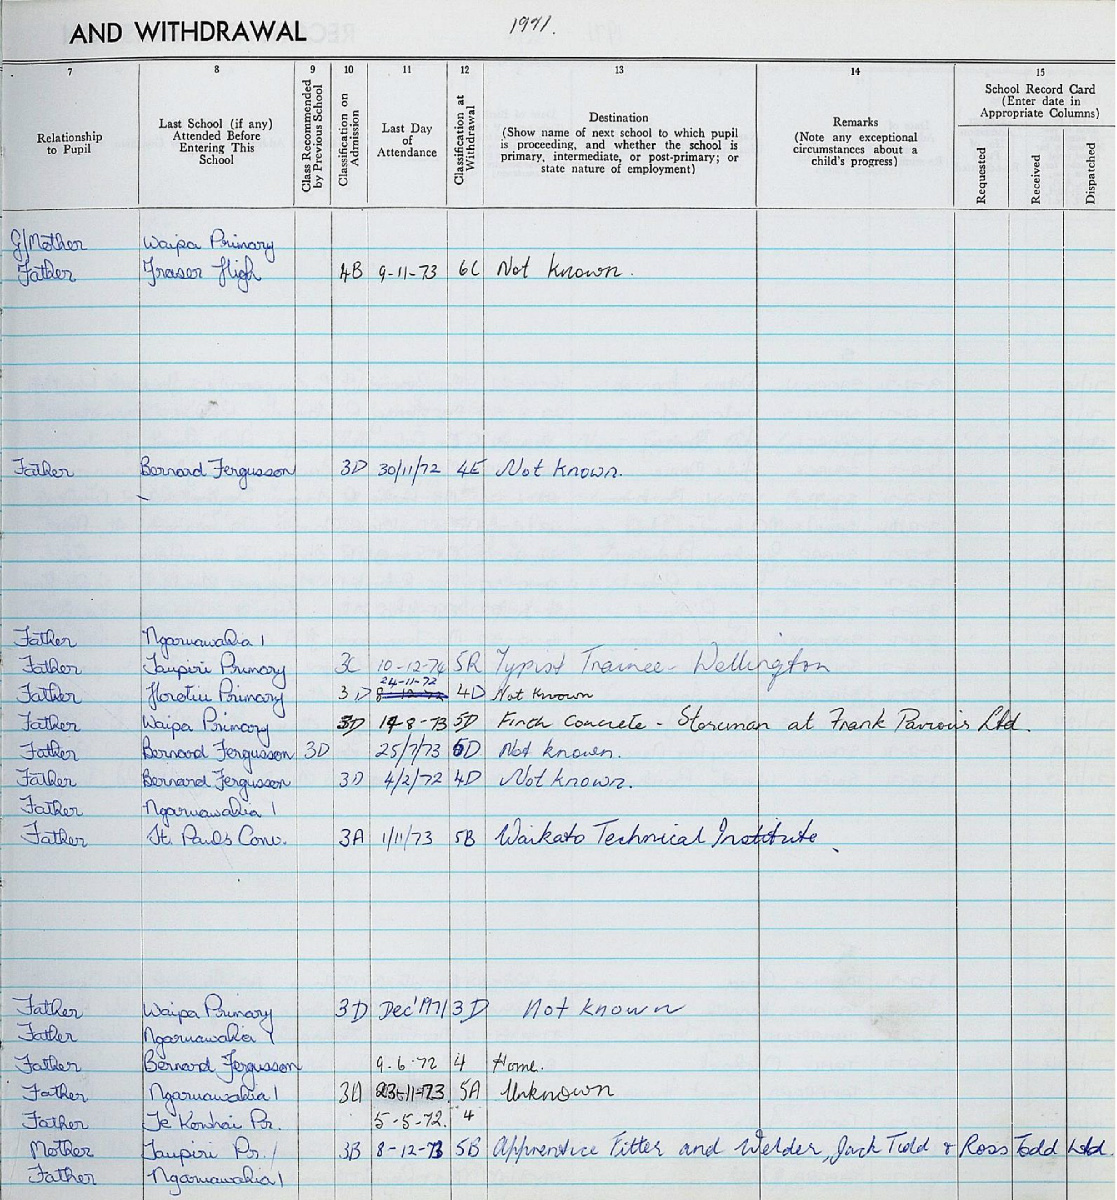 AND WITHDRAWAL 1971.
7 8 9 10 11 12 13 14 15
Relationship to Pupil
Last School (if any) Attended Before Entering This School
Class Recommended by Previous School
Classification on Admission
Last Day of Attendance
Classification at Withdrawal
Destination (Show name of next school to which pupil is proceeding, and whether the school is primary, intermediate, or post-primary; or state nature of employment)
Remarks (Note any exceptional circumstances about a child's progress)
School Record Card (Enter date in Appropriate Columns)
Requested Received Dispatched
G/Mother Waipa Primary
Father Fraser High 4B 9-11-73 6C Not known.
Father Bernard Fergusson 3D 30/11/72 4E Not known.
Father Ngaruawahia 1
Father Taupiri Primary 3C 10-12-74 5R Typist Trainee - Wellington
24-11-72
Father Horotiu Primary 3D 4D Not known
Father Waipa Primary 3D 14-8-73 5D Firth Concrete - Storeman at Frank Ltd.
Father Bernard Fergusson 3D 25/7/73 5D Not known.
Father Bernard Fergusson 3D 4/2/72 4D Not known.
Father Ngaruawahia 1
Father St. Pauls Conv. 3A 1/11/73 5B Waikato Technical Institute
Father Waipa Primary 3D Dec' 1971 3D Not known
Father Ngaruawahia 1
Father Bernard Fergusson 9.6.72 4 Home.
Father Ngaruawahia 1 3A 23-11-73 5A Unknown
Father Te Kowhai Pr. 5-5-72. 4
Mother Taupiri Pr. 3B 8-12-73 5B Apprentice Fitter and Welder, Jack Tidd & Ross Todd Ltd.
Father Ngaruawahia 1